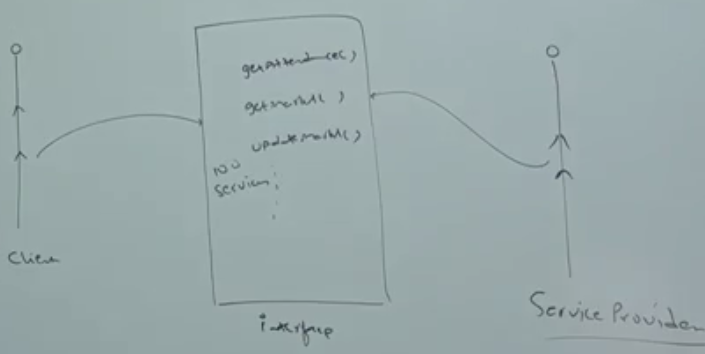 getAttendance()
getmarks()
updatemarks()
100
services
Client
interface
Service Provider